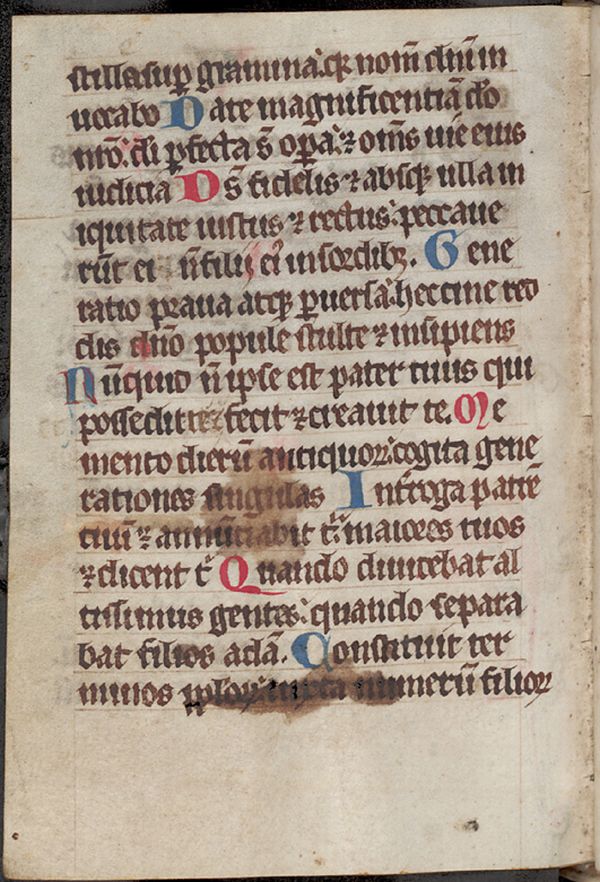 stille sup̱ gramina: q̄ꝛ nom̄ dn̄i in
uocabo Date magnificentiā do̅
nr̄o. di ꝑfecta s̄ oꝑa: ⁊ om̄s uie eius
iudicia Ds̄ fidel̄is ⁊ absq̨ ulla in
iquitate iustus ⁊ rectus: peccaue
rūt ei n̄ filij ei᾽ in sordibꝫ. Gene
ratio praua atq̨ ꝑuersa: heccine red
dis dn̄o popule stulte ⁊ insipiens
Nūquid n̄ ipse est pater tuus qui
possedit te ⁊ fecit ⁊ creauit te. Me
mento dierū antiquoꝝ: cogita gene
rationes singulas Int̄roga patrē
tuū ⁊ annūciabit t᾽: maiores tuos
⁊ dicent t᾽ Quando diuidebat al
tissimus gentes: quando separa
bat filios adā. Constituit ter
minos pploꝝ: iuxta numerū filioꝝ